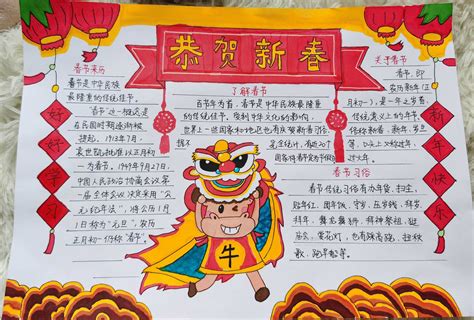 恭贺新春
春节来历
春节是中华民族
最隆重的传统佳节。
春节这一概念是
在民国时期逐渐被
提起。1913年7月,
袁世凯批准以正月初
一为春节。1949年9月27日,
中国人民政治协商会议第
一届全体会议决定采用"公
元纪年法",将公历1月
1日称为"元旦",农历
正月初一仍称"春节"。
好
好
学
习
了解春节
百节年为首,春节是中华民族最隆重
的传统佳节,受到中华文化的影响,
世界上一些国家和地区也有庆贺新春习俗。
据不完全统计,
国家将春节定为
春节习俗
春节传统习俗有办年货、扫尘、
贴年红、团年饭、守岁、压岁钱、拜岁、
拜年、舞龙舞狮、拜神祭祖、逛
庙会、赏花灯,也有踩高跷、扭秧
歌、跑旱船等。
关于春节
春节,即
农历新年(正
月初一),是一年之岁首,
传统意义上的年节。
俗称新春、新岁、
新年、
年禧、大年等,
口头上又称度岁、
庆岁、过年、
过大年。
新
年
快
乐
牛